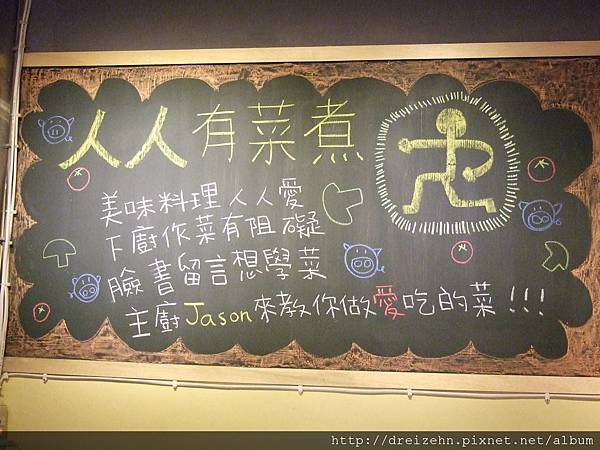 人人有菜煮
美味料理人人愛
下廚作菜有阻礙
臉書留言想學菜
主廚Jason來教你做愛吃的菜!!!
http://dreizehn.pixnet.net/album